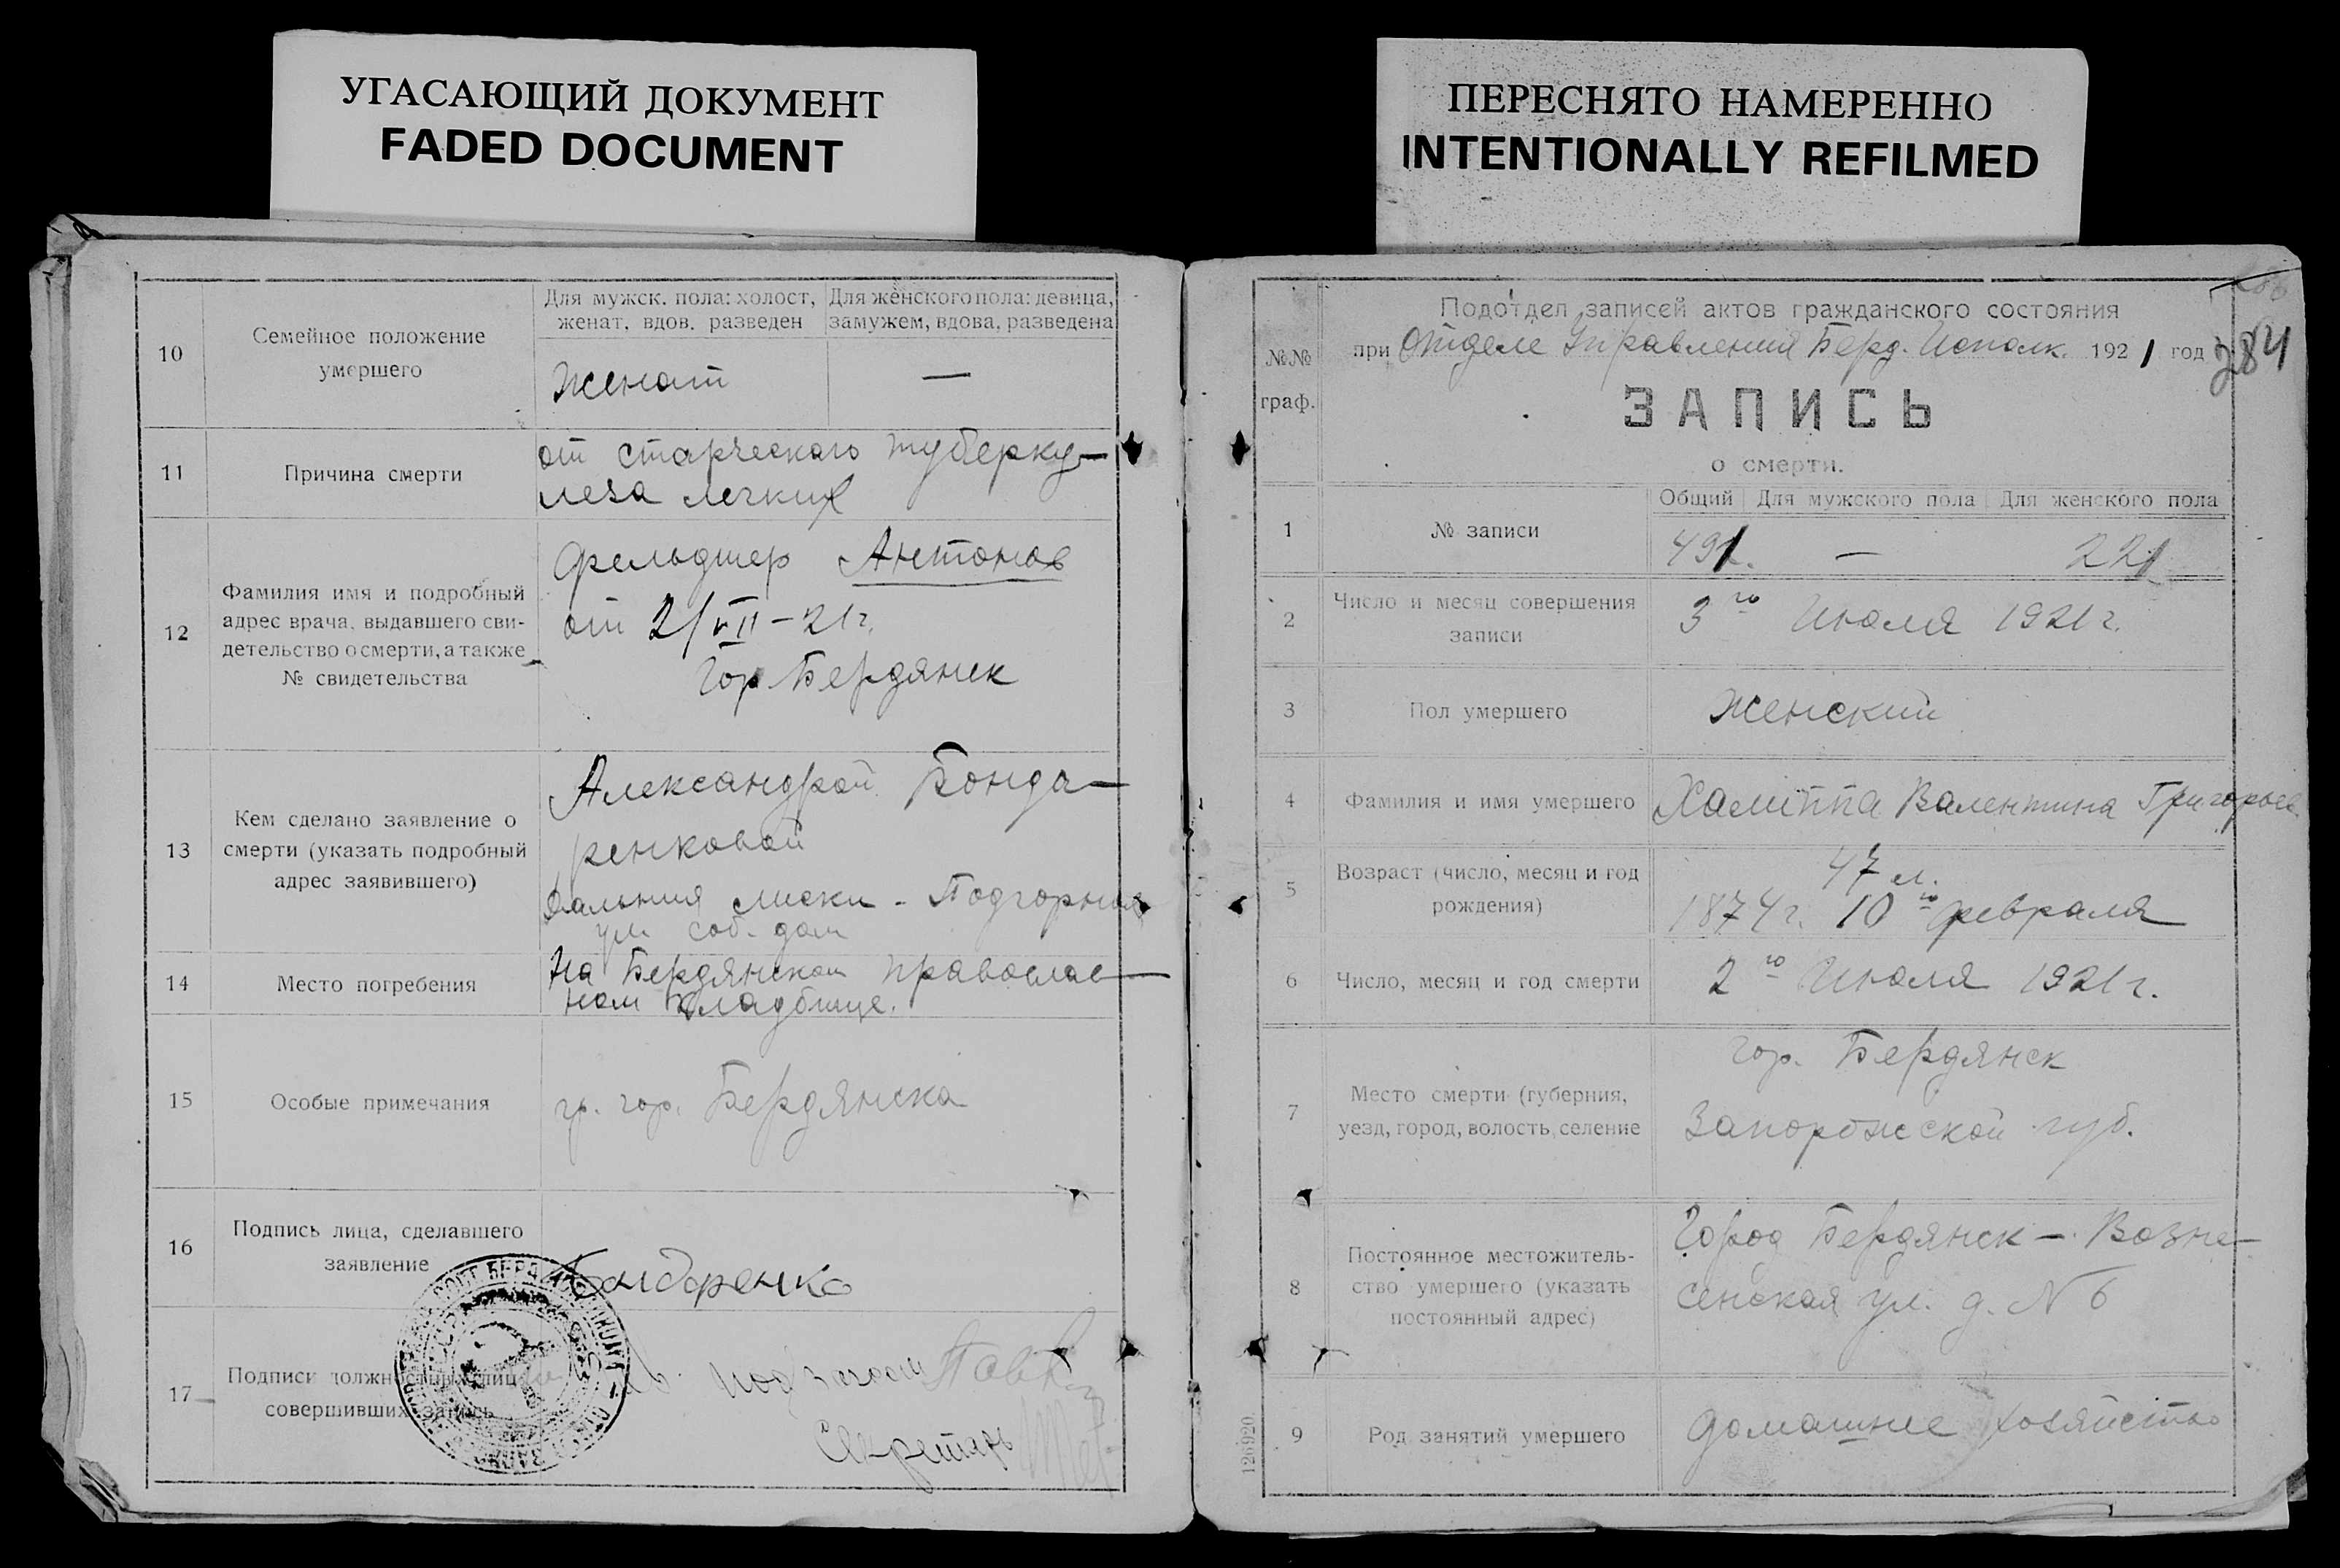 УГАСАЮЩИЙ ДОКУМЕНТ
FADED DOCUMENT
ПЕРЕСНЯТО НАМЕРЕННО
INTENTIONALLY REFILMED
10
Семейное положение
умершего
Для мужск. пола: холост,
женат, вдов. разведен
Для женского пола: девица,
замужем, вдова, разведена
Женат
—
11
Причина смерти
от старческаго туберку-
леза легких
12
Фамилия имя и подробный
адрес врача, выдавшего сви-
детельство о смерти, а также
№ свидетельства
фельдшер Антонов
от 2/VII-21г.
Гор. Бердянск
13
Кем сделано заявление о
смерти (указать подробный
адрес заявившего)
Александрой Бонда-
ренковой
Дальния лиски - Подгорная
ул. соб. дом
14
Место погребения
На Бердянском православ-
ном кладбище.
15
Особые примечания
гр. гор. Бердянска
16
Подпись лица, сделавшего
заявление
Бондаренко
17
Подписи должностных лиц,
совершивших запись
Секретарь
№№
граф.
Подотдел записей актов гражданского состояния
при Отделе Управления Берд. Исполк. 1921 год
284
ЗАПИСЬ
о смерти.
1
№ записи
Общий Для мужского пола Для женского пола
491. — 221
2
Число и месяц совершения
записи
3го Июля 1921г.
3
Пол умершего
Женский
4
Фамилия и имя умершего
Халиппа Валентина Григорьев
5
Возраст (число, месяц и год
рождения)
47 л.
1874г. 10го февраля
6
Число, месяц и год смерти
2го Июля 1921г.
7
Место смерти (губерния,
уезд, город, волость, селение
гор. Бердянск
Запорожской губ.
8
Постоянное местожитель-
ство умершего (указать
постоянный адрес)
Город Бердянск - Возне-
сенская ул. д. № 6
9
Род занятий умершего
домашнее хозяйство
126920.